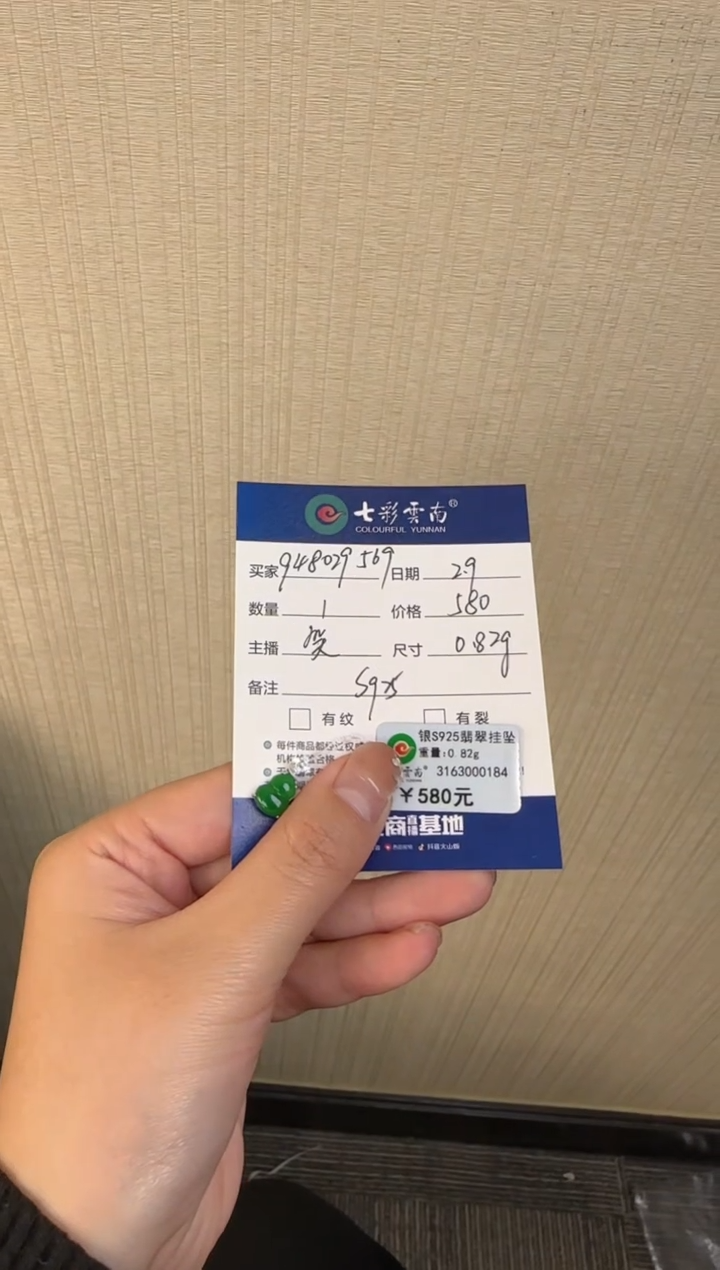 七彩雲南®
COLOURFUL YUNNAN
买家 948029569 日期 2.9
数量 1 价格 580
主播 尺寸 0.82g
备注 S925
有纹 有裂
银S925翡翠挂坠
重量:0.82g
3163000184
¥580元
每件商品都经过权
机构 合格
商 基地
抖音火山版